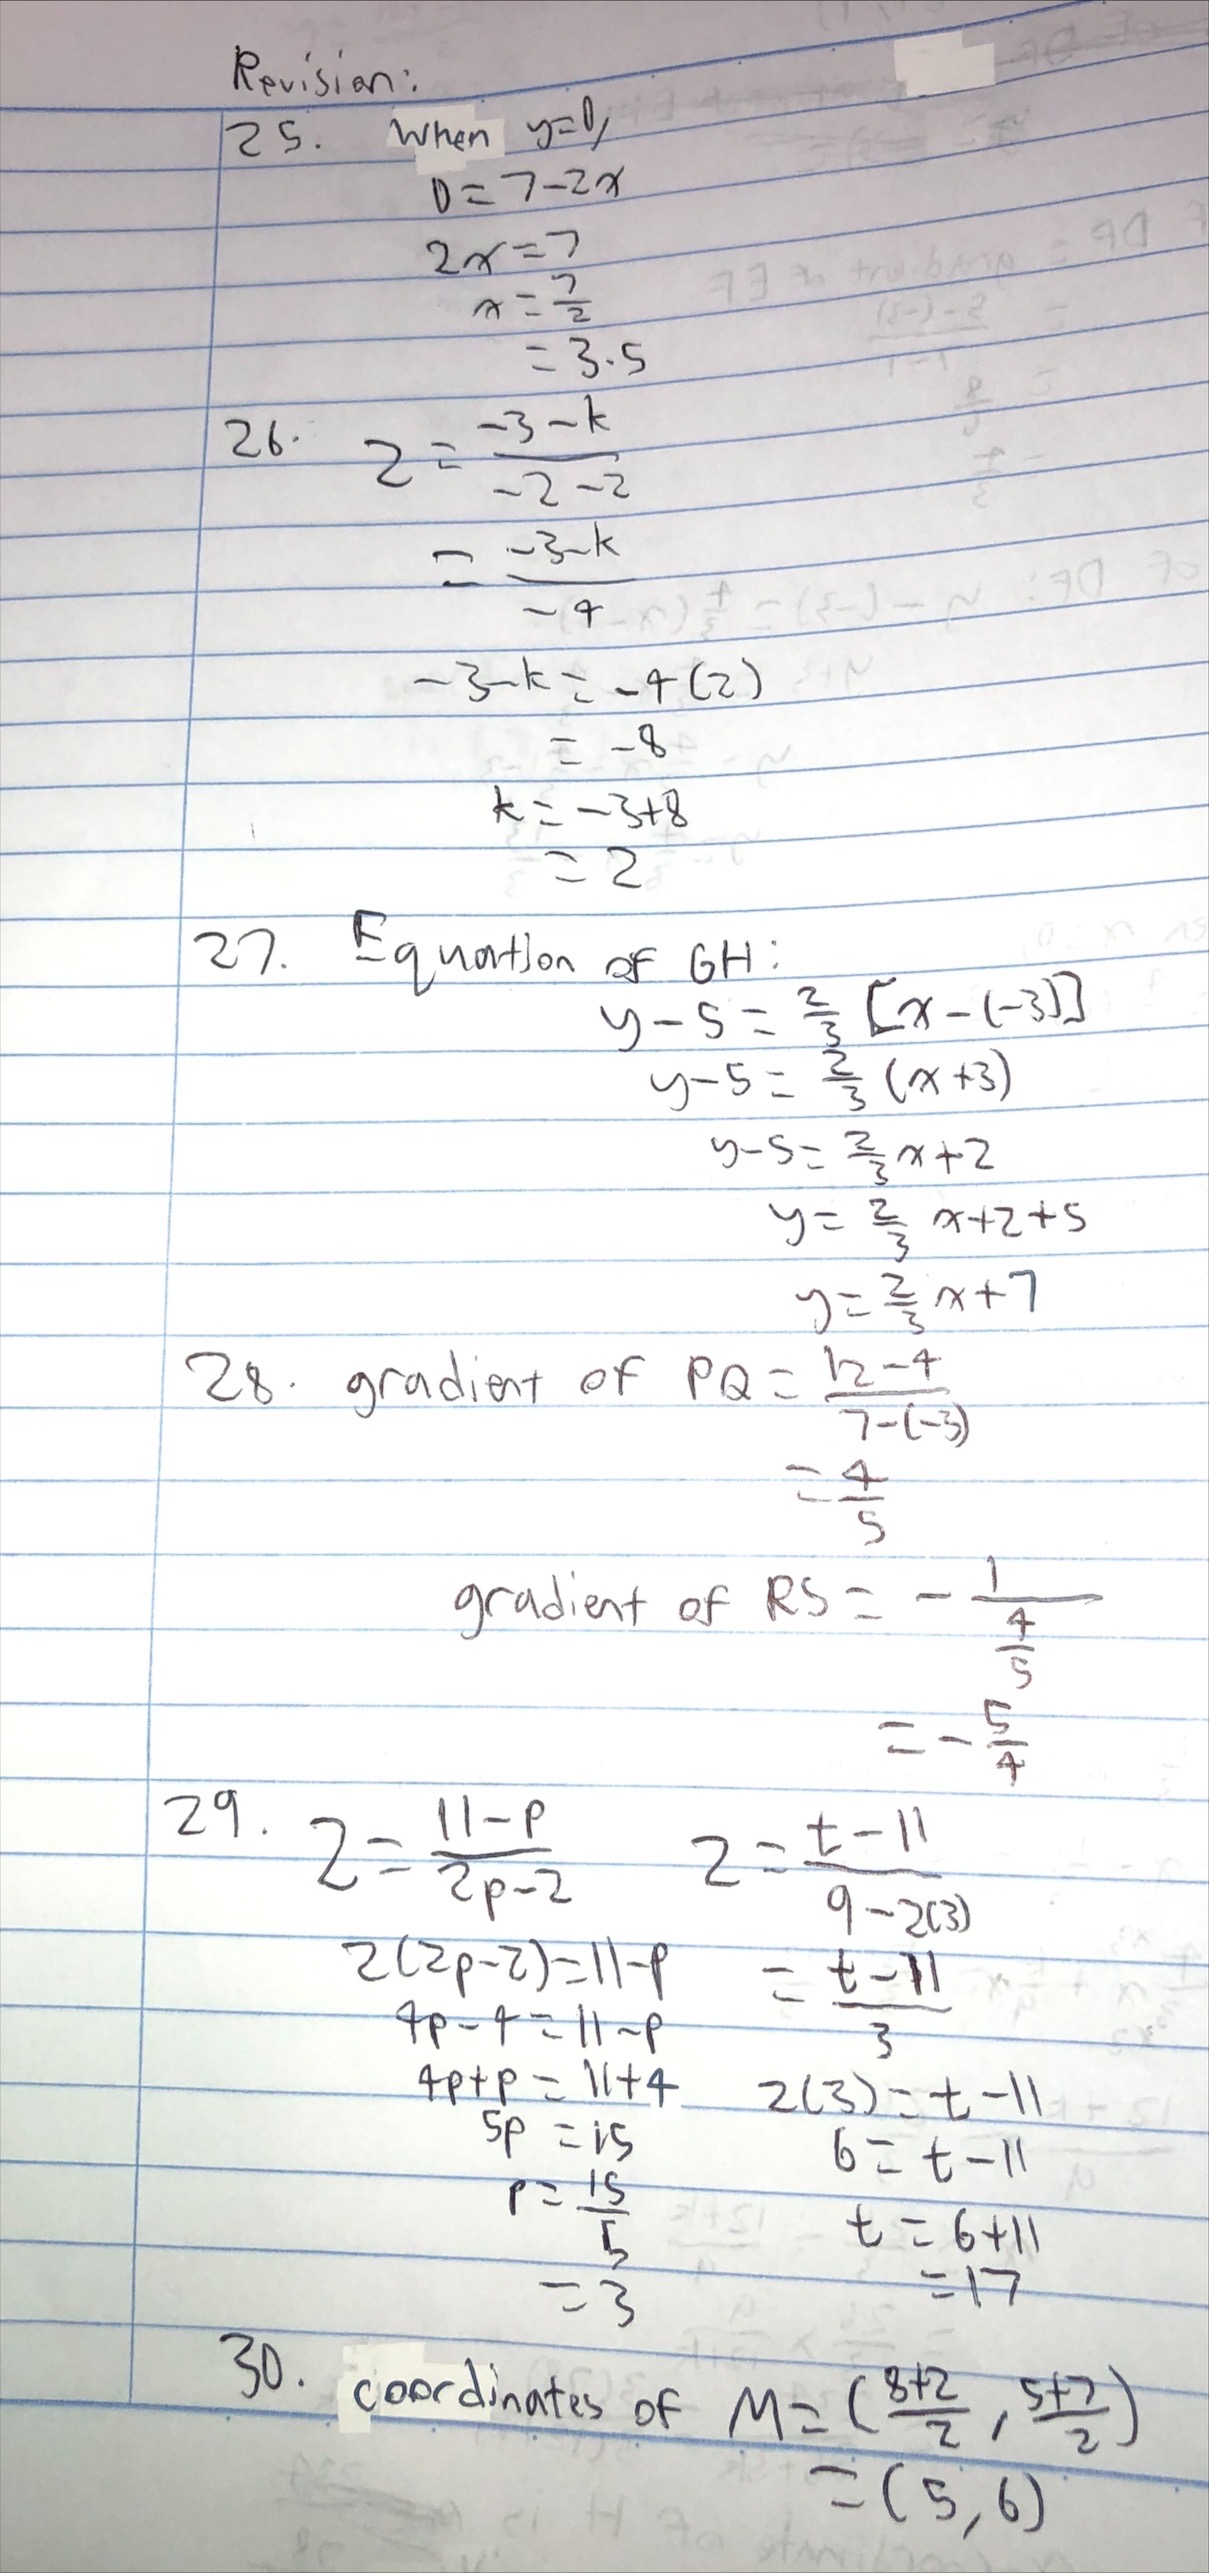 Revision:
25. When y=0,
0=7-2x
2x=7
x=7/2
=3.5
26. 2=(-3-k)/(-2-2)
=(-3-k)/(-4)
-3-k=-4(2)
=-8
k=-3+8
=2
27. Equation of GH:
y-5=2/3[x-(-3)]
y-5=2/3(x+3)
y-5=2/3x+2
y=2/3x+2+5
y=2/3x+7
28. gradient of PQ=(12-4)/(7-(-3))
=4/5
gradient of RS=-1/(4/5)
=-5/4
29. 2=(11-p)/(2p-2)
2(2p-2)=11-p
4p-4=11-p
4p+p=11+4
5p=15
p=15/5
=3
2=(t-11)/(9-2(3))
=(t-11)/3
2(3)=t-11
6=t-11
t=6+11
=17
30. coordinates of M=((8+2)/2, (5+7)/2)
=(5,6)